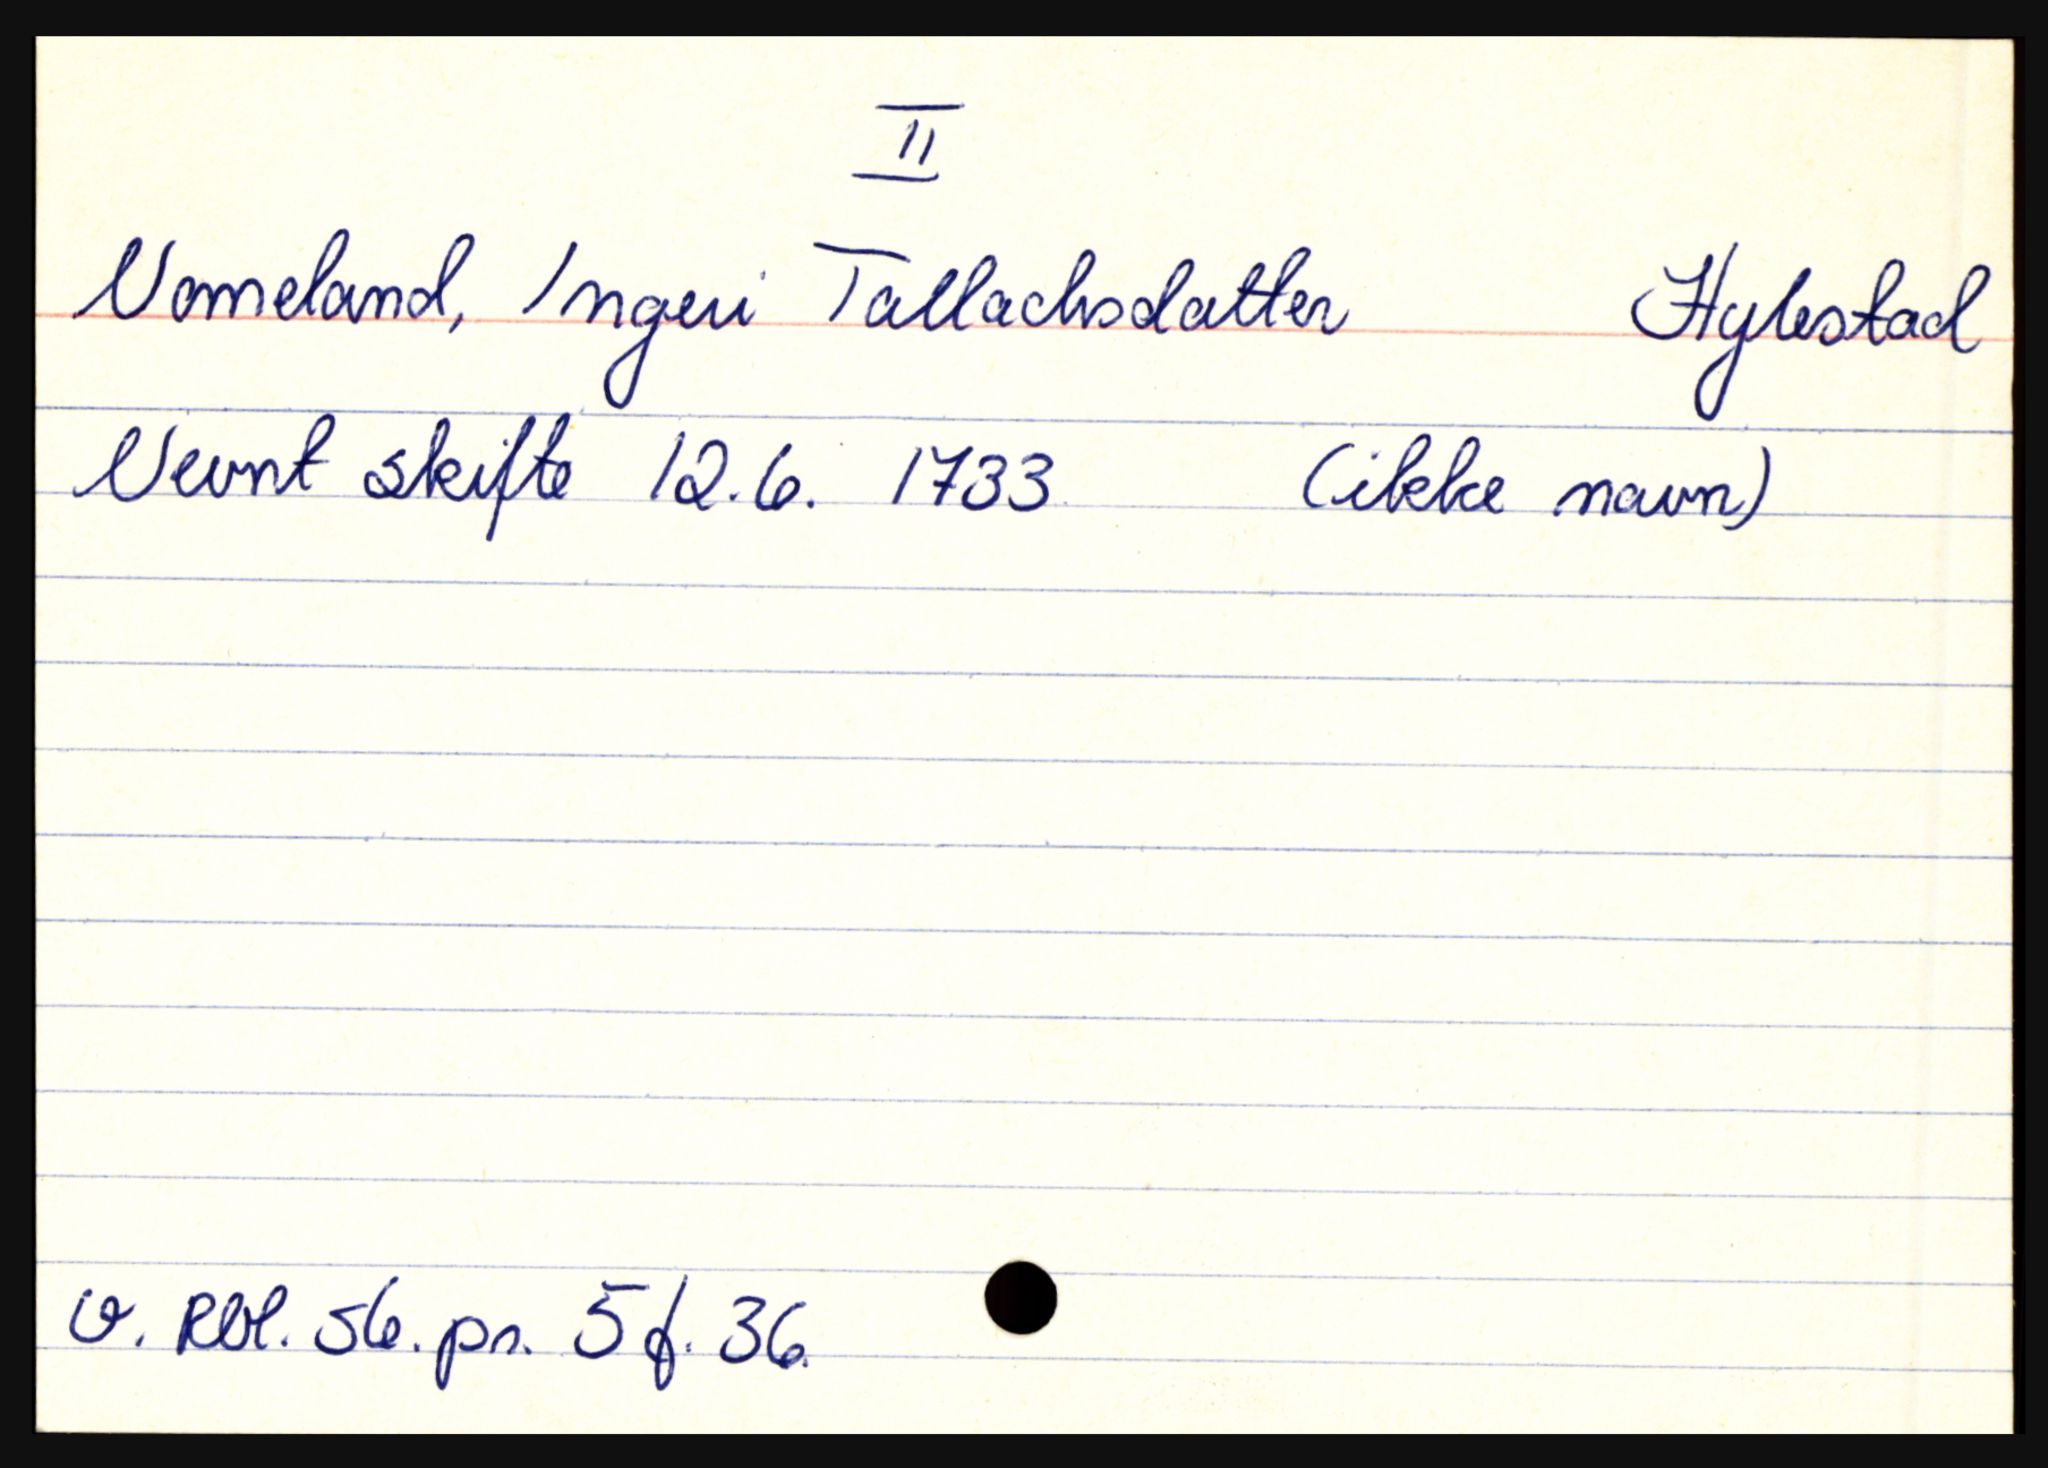 II
Nomeland, Ingeri Tallachsdatter Hylestad
Nevnt skifte 12.6. 1733 (ikke navn)
v. Rbl. S6. pr. 5 f. 36.